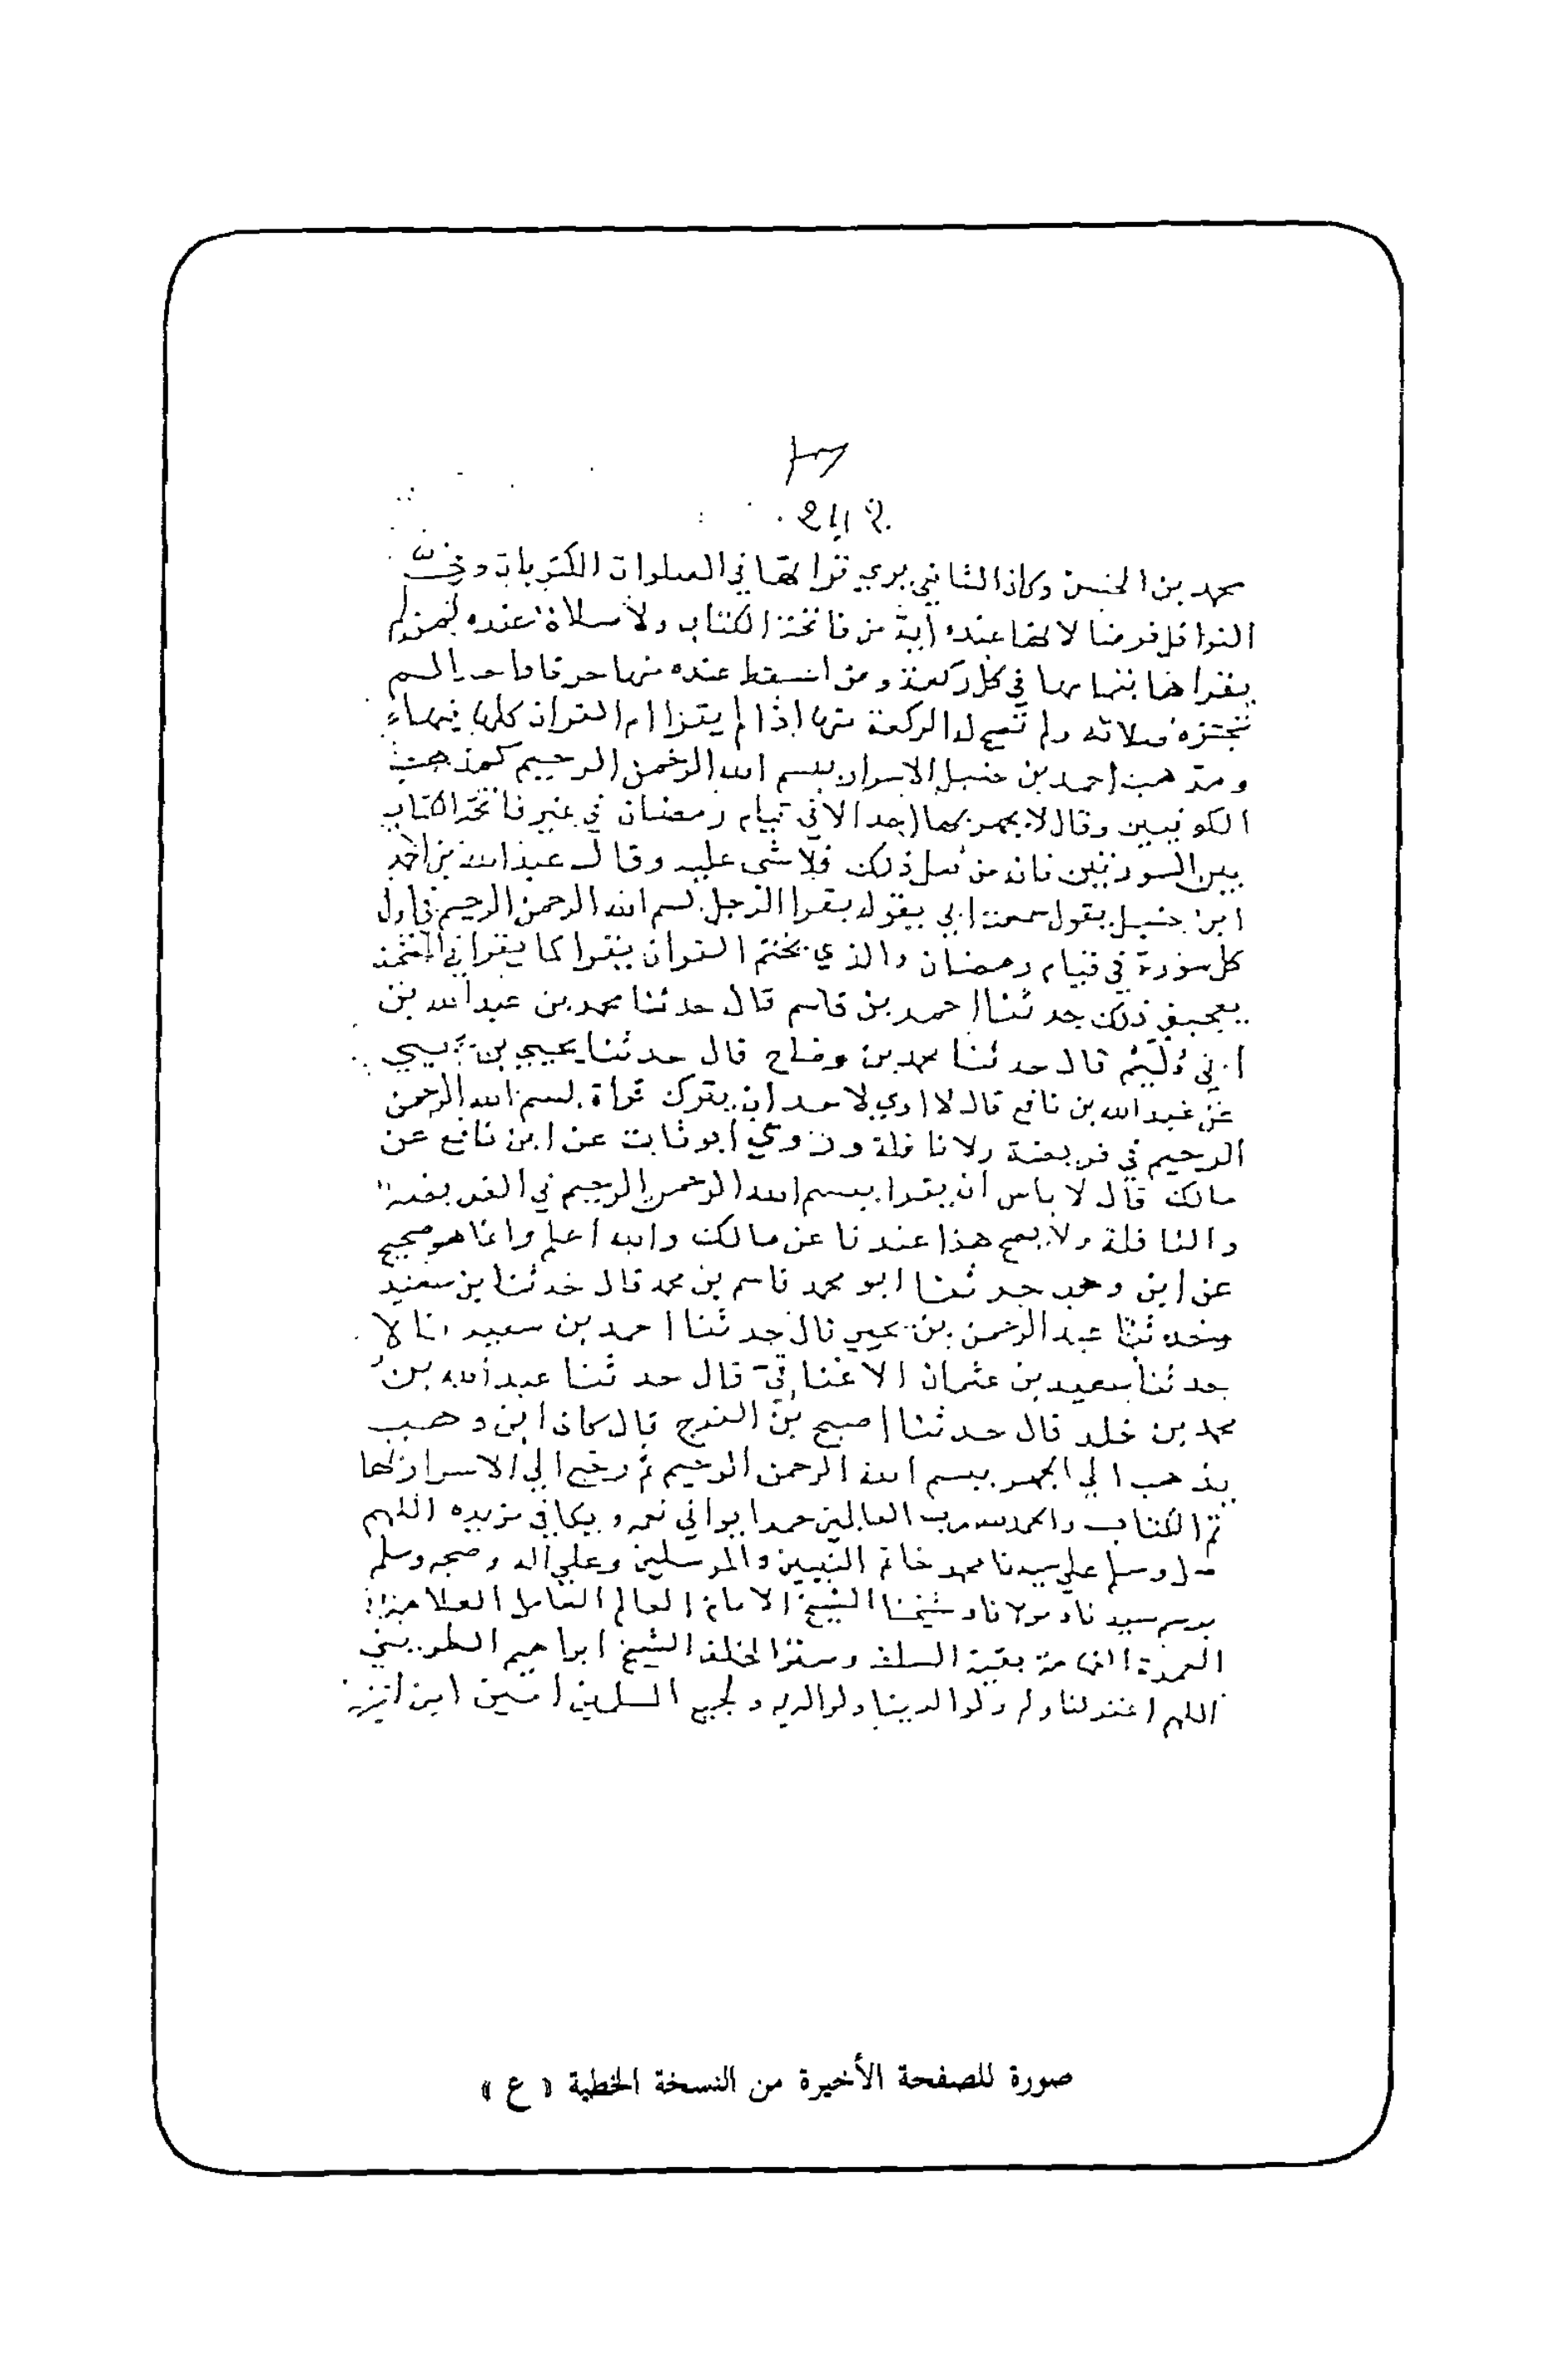 محمد بن الحسن وكان الشافعي يري قراتها في الصلوات المكتوبات وفي
النوافل فرضا لانها عنده أية من فاتحة الكتاب ولا صلاة عنده لمن لم
يقراها بتمامها في كل ركعة ومن اسقط عنده منها حرفا واحدا لم
تجزه صلاته ولم تصح له الركعة متها اذا لم يقرا ام القران كلها فيها
ومذهب احمد بن حنبل الاسرار ببسم الله الرحمن الرحيم كمذهب
الكوفيين وقال لا يجهر بها احد الا في قيام رمضان في غير فاتحة الكتاب
بين السورتين فانه من فعل ذلك فلا شى عليه وقال عبد الله بن احمد
ابن حنبل يقول سمعت ابي يقول يقرا الرجل بسم الله الرحمن الرحيم في اول
كل سورة في قيام رمضان والذي يختم القران يقرا كما يقرا في
يعجبني ذلك حدثنا احمد بن قاسم قال حدثنا محمد بن عبد الله بن
ابي دُلَيْم قال حدثنا محمد بن وضاح قال حدثنا يحيي بن يحيي
عن عبد الله بن نافع قال لا اري لاحد ان يترك قراة بسم الله الرحمن
الرحيم في فريضة ولا نافلة وروي ابو ثابت عن ابن نافع عن
مالك قال لا باس ان يقرا ببسم الله الرحمن الرحيم في الفريضة
والنافلة ولا يصح هذا عندنا عن مالك والله اعلم وانما هو صحيح
عن ابن وهب حدثنا ابو محمد قاسم بن محمد قال حدثنا بن سعيد
وحدثنا عبد الرحمن بن يحيي قال حدثنا احمد بن سعيد قالا
حدثنا سعيد بن عثمان الاعناقي قال حدثنا عبد الله بن
محمد بن خلد قال حدثنا اصبح بن الفرج قال كان ابن وهب
يذهب الي الجهر ببسم الله الرحمن الرحيم ثم رجع الي الاسرار بها
تم الكتاب والحمد لله رب العالمين حمدا يوافي نعمه ويكافي مزيده اللهم
صل وسلم علي سيدنا محمد خاتم النبيين والمرسلين وعلي اله وصحبه وسلم
برسم سيدنا ومولانا وشيخنا الشيخ الامام العالم العامل العلامة
العمدة الفهامة بقية السلف الخلف الشيخ ابراهيم
اللهم اغفر لنا وله ولوالدينا ولوالديه ولجميع المسلمين امين امين امين
صورة للصفحة الأخيرة من النسخة الخطية « ع »